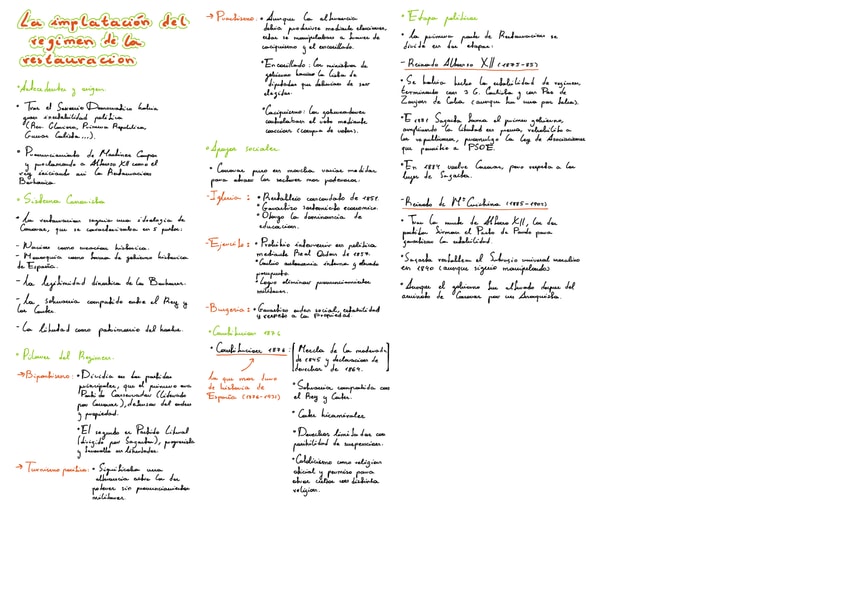 La implatación del
regimen de la
restauración
• Antecedentes y origen.
• Tras el Sexenio Democratico habia
gran inestabilidad politica
(Rev. Gloriosa, Primera Republica,
Guerra Carlista...).
• Pronunciamiento de Martinez Campos
y proclamando a Alfonso XII como el
rey iniciando asi la Restauracion
Borbonica.
• Sistema Canovista
• La restauracion seguia una ideologia de
Canovas, que se caracterizaba en 5 pilares:
- Nacion como creacion historica.
- Monarquia como forma de gobierno historica
de España.
- La legitimidad dinastica de los Borbones.
- La soberania compartida entre el Rey y
las Cortes.
- La libertad como patrimonio del hombre.
• Pilares del Regimen.
→ Bipartidismo: • Dividia en dos partidos
principales, que el primero era
Partido Conservador (liderado
por Canovas), defensor del orden
y propiedad.
• El segundo es Partido Liberal
(dirigido por Sagasta), progresista
y favorable en libertades.
→ Turnismo pacifico: • Significaba una
alternancia entre los dos
poderes sin pronunciamientos
militares.
→ Pucherismo: • Aunque la alternancia
debia producirse mediante elecciones,
estas se manipulaban a traves de
caciquismo y el encasillado.
• Encasillado: Los ministros de
gobierno hacian la lista de
diputados que debian de ser
elegidos.
• Caciquismo: Los gobernadores
controlaban el voto mediante
coaccion (compra de votos).
• Apoyos sociales
• Canovas puso en marcha varias medidas
para atraer los sectores mas poderosos:
- Iglesia: • Restablecio concordato de 1851.
• Garantizo sostenimiento economico.
• Otorgo la dominancia de
educacion.
- Ejercito: • Prohibio intervenir en politica
mediante Real Orden de 1857.
• Cedio autonomia interna y elevado
presupuesto.
• Logro eliminar pronunciamientos
militares.
- Burgesia: • Garantizo orden social, estabilidad
y respeto a la propiedad.
• Constitucion 1876
• Constitucion 1876: [Mezcla de la moderada
de 1845 y declaracion de
derechos de 1869.]
La que mas duro
de historia de
España (1876-1931)
• Soberania compartida con
el Rey y Cortes.
• Cortes bicamerales
• Derechos limitados con
posibilidad de suspension.
• Catolicismo como religion
oficial y permiso para
otros cultos con distinta
religion.
• Etapa politicas
• La primera parte de Restauracion se
divide en dos etapas:
- Reinado Alfonso XII (1875-85)
• Se habia hecho la estabilidad de regimen,
terminando con 3 G. Carlista y con Paz de
Zanjon de Cuba
• En 1881 Sagasta forma el primer gobierno,
ampliando la libertad en prensa, rehabilito a
los republicanos, promulgo la Ley de Asociaciones
que permitio a PSOE.
• En 1884 vuelve Canovas, pero respeta a las
leyes de Sagasta.
- Reinado de Mª Cristina (1885-1902)
• Tras la muerte de Alfonso XII, los dos
partidos firman el Pacto de Pardo para
garantizar la estabilidad.
• Sagasta restablece el Sufragio universal masculino
en 1890 (aunque siguio manipulado)
• Aunque el gobierno fue alternado despues del
asesinato de Canovas por un Anarquista.